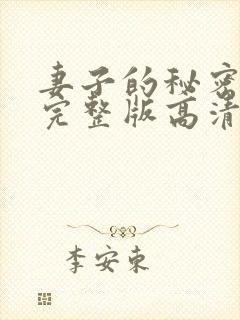 妻子的秘密
完整版高清
李安东